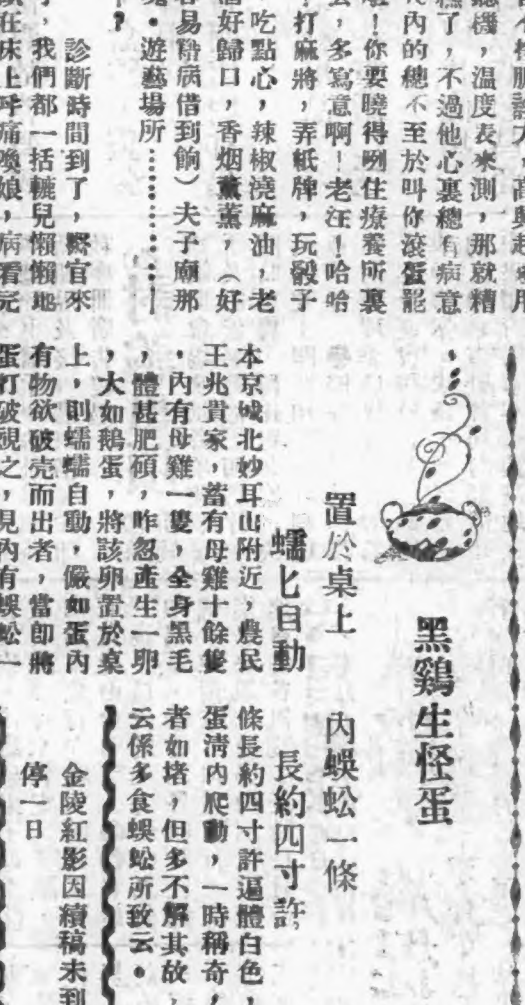 聽機，温度表來測，那就糟
糕了，不過他心裏總有病意
內的總不至於叫你滾蛋罷
！你要曉得咧住療養所裏
，多寫意啊！老汪！哈哈
！打麻將，弄紙牌，玩骰子
吃點心，辣椒澆麻油，老
酒好歸口，香烟薰薰，（好
容易藉病借到餉）夫子廟那
。遊藝場所…………
？
診斷時間到了，醫官來
，我們都一括轆兒懶懶地
在床上呼痛喚娘，病看完
黑鷄生怪蛋
置於桌上　內蜈蚣一條
蠕匕自動　長約四寸許
本京城北妙耳山附近，農民
王兆貴家，蓄有母雞十餘隻
，內有母雞一隻，全身黑毛
，體甚肥碩，昨忽產生一卵
，大如鵝蛋，將該卵置於桌
上，則蠕蠕自動，儼如蛋內
有物欲破壳而出者，當即將
蛋打破視之，見內有蜈蚣一
條長約四寸許逼體白色，
蛋清內爬動，一時稱奇，
者如堵，但多不解其故，
云係多食蜈蚣所致云。
金陵紅影因續稿未到
停一日